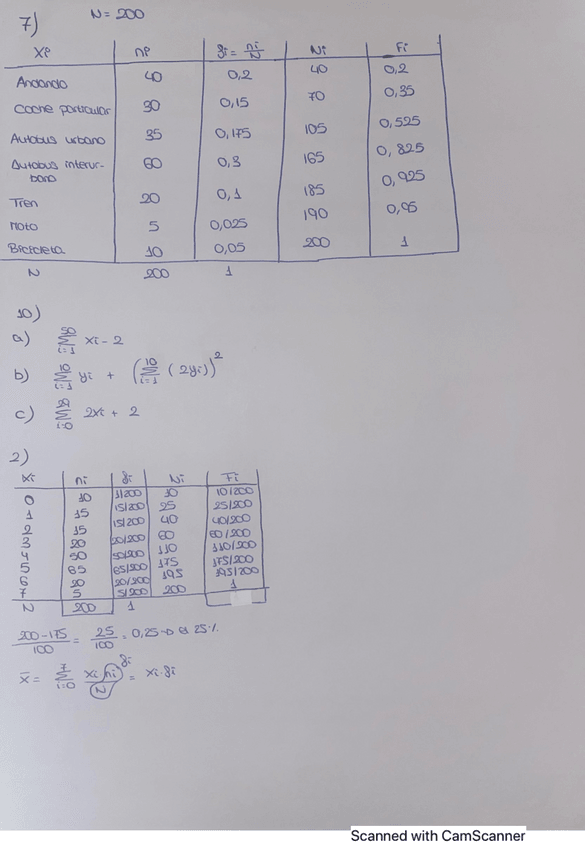 7) N = 200
Xi ni fi = ni/N Ni Fi
Andando 40 0,2 40 0,2
Coche particular 30 0,15 70 0,35
Autobus urbano 35 0,175 105 0,525
Autobus interur- 60 0,3 165 0,825
bano
Tren 20 0,1 185 0,925
Moto 5 0,025 190 0,95
Bicicleta 10 0,05 200 1
N 200 1
10)
a) 50 Σ i=1 xi - 2
b) 10 Σ i=1 yi + (10 Σ i=1 (2yi))²
c) 20 Σ i=0 2xi + 2
2)
xi ni fi Ni Fi
0 10 10/200 10/200
1 15 15/200 25 25/200
2 15 15/200 40 40/200
3 20 20/200 60 60/200
4 50 50/200 110 110/200
5 65 65/200 175 175/200
6 20 20/200 195 195/200
7 5 5/200 200 1
N 200 1
200-175/100 = 25/100 = 0,25 → es 25%
x̄ = 7 Σ i=0 xi·ni/N fi = xi·fi
Scanned with CamScanner